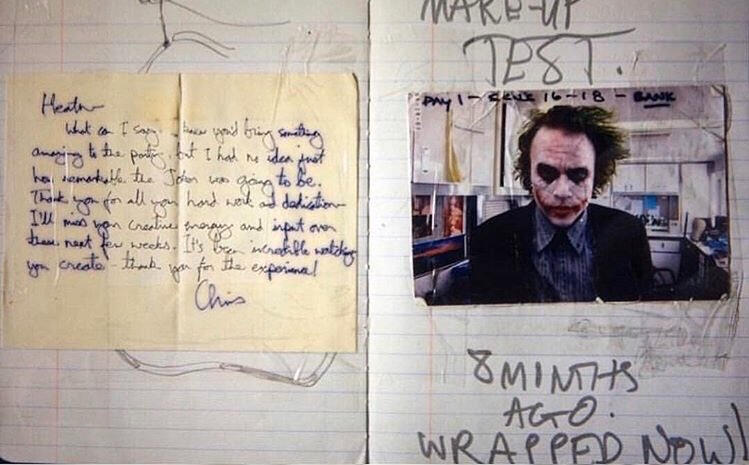 Heath—
What can I say. I knew you'd bring something
amazing to the party, but I had no idea just
how remarkable the Joker was going to be.
Thank you for all your hard work and dedication—
I'll miss your creative energy and input over
these next few weeks. It's been incredible watching
you create – thank you for the experience!
Chris
MAKE-UP
TEST.
DAY 1 – 16–18 – BANK
8 MINTHS
AGO.
WRAPPED NOW!